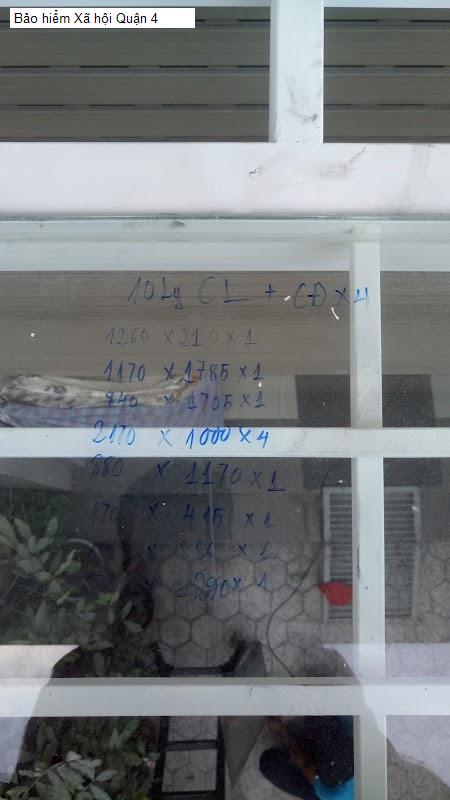 Bảo hiểm Xã hội Quận 4
10 Ly CL + CĐ x 4
1260 x 210 x 1
1170 x 1785 x 1
940 x 1705 x 1
2170 x 1000 x 4
880 x 1170 x 1
170 x 415 x 1
x 1
x 290 x 1